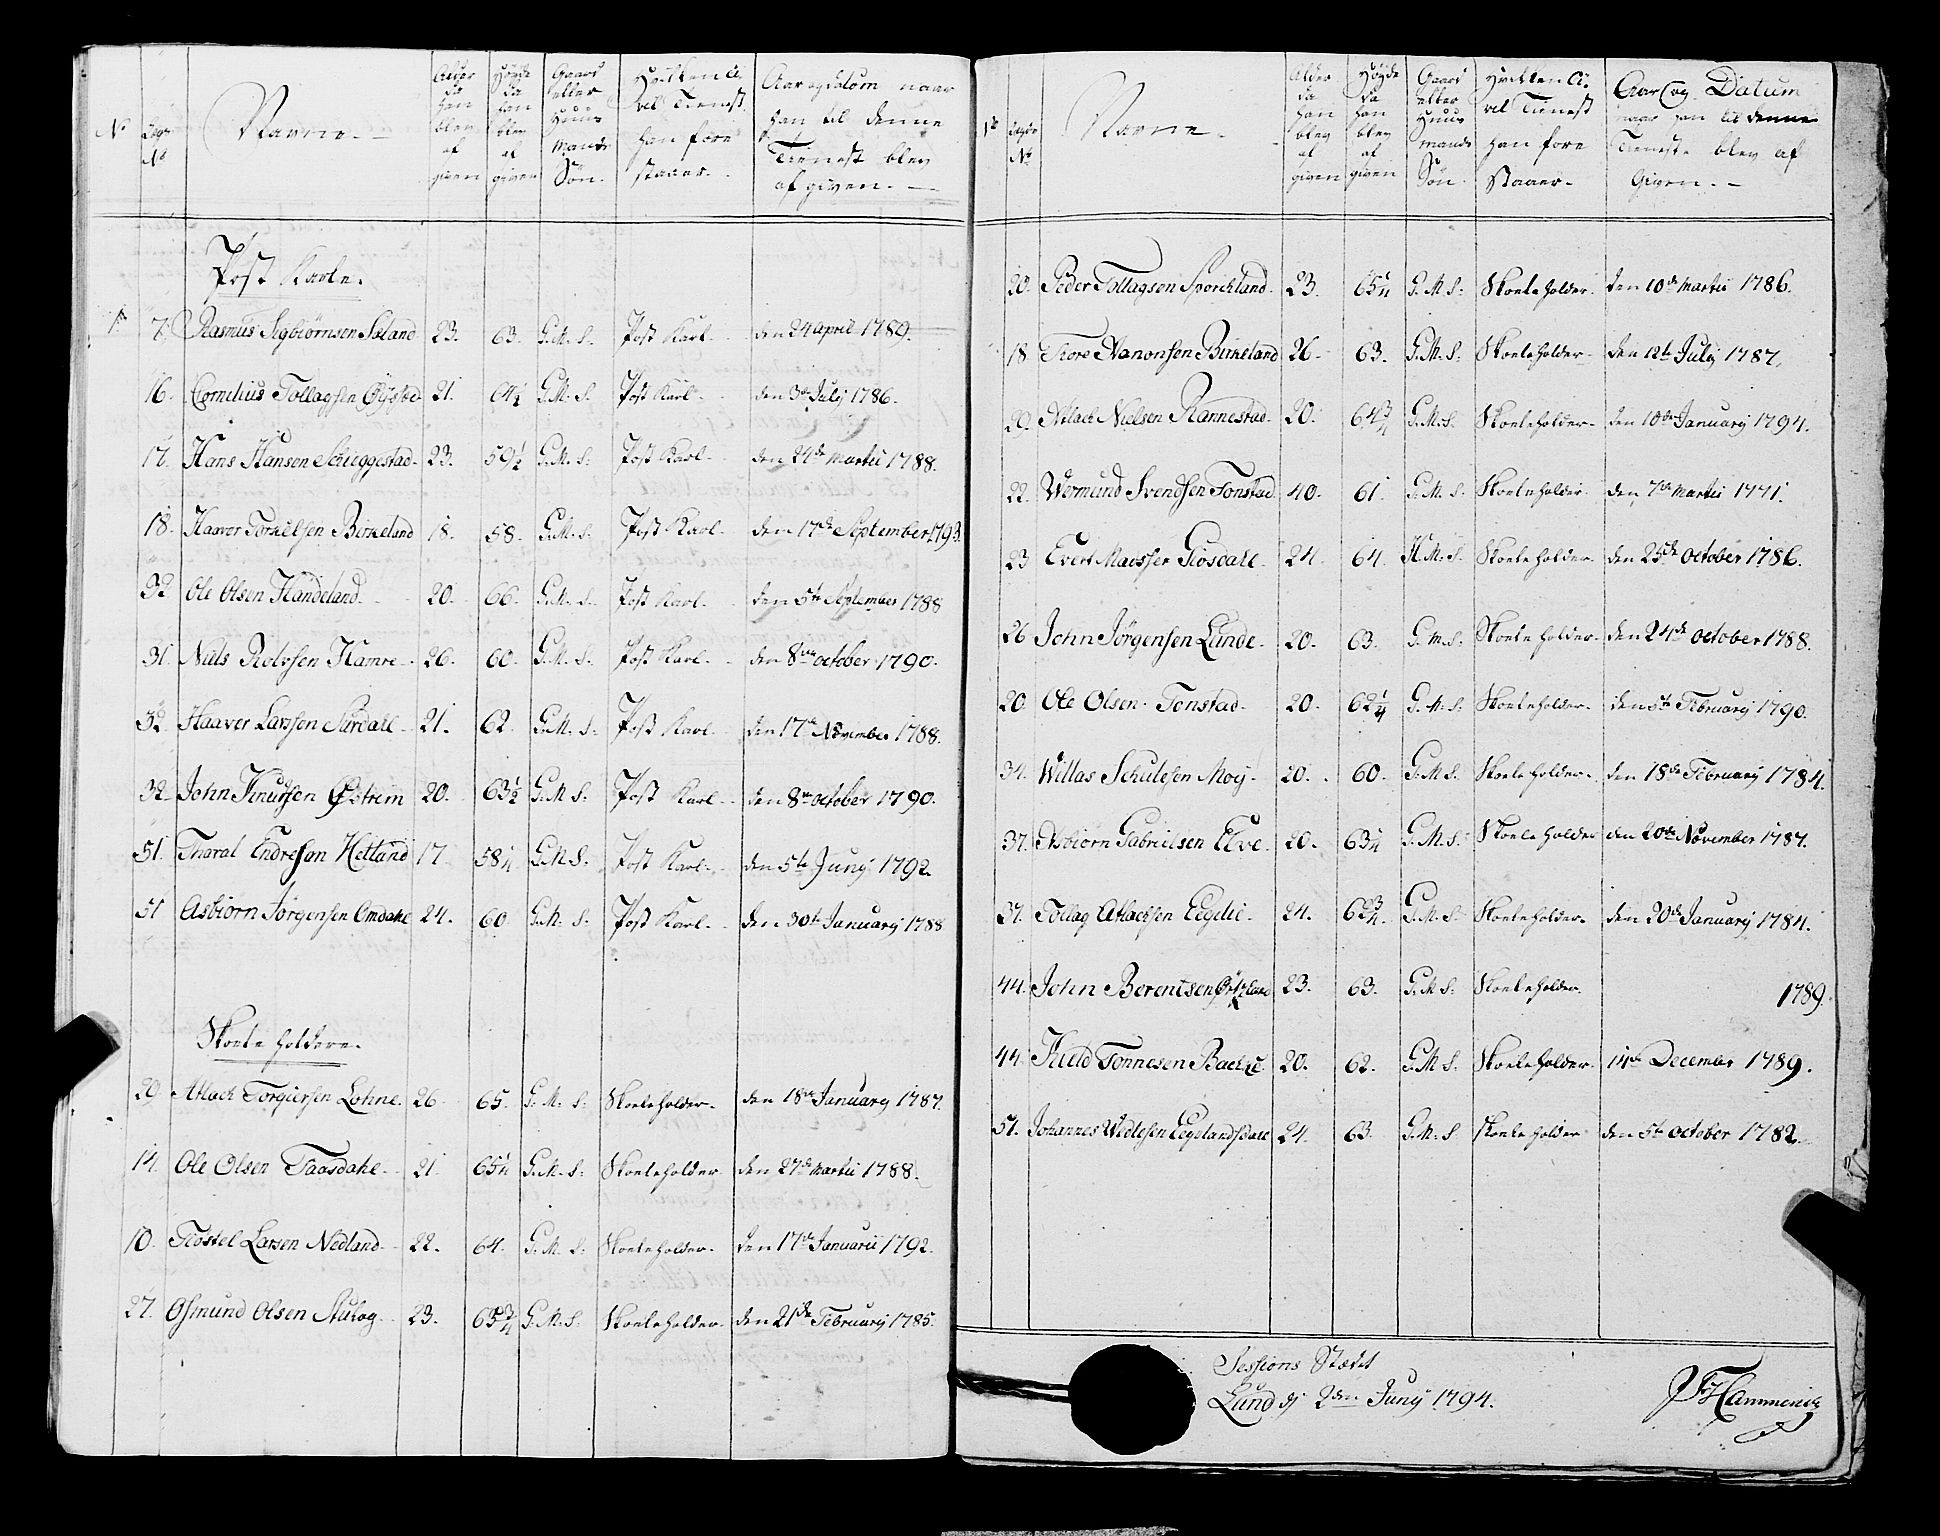 No
Lægs No
Navne.
Alder da han blev af given
Høyde da han blev af given
Gaard eller Huus mands Søn.
Hvilken Ci vil Tienest han fore staaer.
Aar og datum naar han til denne Tienest blev af given.
Post Karle.
1 7. Rasmus Sigbiørnsen Sæland 23. 63. G. M. S. Post Karl. den 24 april 1789.
16. Cornelius Tollagsen Øysted 21. 64½ G. M. S. Post Karl. den 3de July 1786.
17. Hans Hansen Schieggestad 23. 59½ G. M. S. Post Karl. den 24de Martii 1788.
18. Haavor Torkelsen Birkeland 18. 58. G. M. S. Post Karl. den 17de September 1793.
32. Ole Olsen Handeland 20. 66. G. M. S. Post Karl. den 5te September 1788
31. Niels Rolvsen Hamre 26. 60. G. M. S. Post Karl. den 8de october 1790.
32. Haaver Larssen Surdall 21. 62. G. M. S. Post Karl. den 17de November 1788.
32. John Knudsen Østrem 20. 63½ G. M. S. Post Karl. den 8de october 1790.
51. Tharal Endresen Hetland 17. 58¼ G. M. S. Post Karl. den 5te Juny 1792.
51 Asbiørn Jørgensen Omdahl 24. 60. G. M. S. Post Karl. den 30te January 1788
Skoele holdere.
29 Atlach Torgiersen Lohne. 26 65. G. M. S. Skoeleholder. den 18de January 1787.
14. Ole Olsen Taasdahl. 21. 65¼ G. M. S. Skoeleholder den 27de Martii 1788.
10. Tiøstel Larsen Nedland 22. 64. G. M. S. Skoeleholder. den 17de Januarii 1792.
27. Osmund Olsen Stutog 23. 63¾ G. M. S. Skoeleholder. den 21de February 1785.
No
Lægds No
Navne.
Alder da han blev af given
Høyde da han blev af given
Gaard eller Huus mands Søn.
Hvilken Ci vil Tienest han fore staaer.
Aar og Datum naar han til denne Tieneste blev af Given.
20. Peder Tollagsen Sporckland. 23. 65¼ G. M. S. Skoeleholder. den 10de Martii 1786.
18. Tore Aanonsen Birkeland 26. 63. G. M. S. Skoeleholder. den 12te July 1787.
29. Atlach Nielsen Rannestad. 20. 64¾ G. M. S. Skoeleholder. den 10de January 1794.
22. Wermund Svendsen Tonstad 40. 61. G. M. S. Skoeleholder. den 7de Martii 1771.
23 Evert Maossen Giosdahl. 24. 64. H. M. S. Skoeleholder. den 25de october 1786.
26 John Jørgensen Lunde. 20. 63. G. M. S. Skoeleholder. den 24de october 1788.
20. Ole Olsen Tonstad. 20. 62¼ G. M. S. Skoeleholder. den 5te February 1790.
34. Willas Schulesen Moy. 20. 60. G. M. S. Skoeleholder. den 18de February 1784.
37. Asbiørn Gabrielsen Elve. 20. 63¼ G. M. S. Skoele holder den 20de November 1787.
37. Tollag Atlachsen Eegelie. 24. 62¾ G. M. S. Skoeleholder. den 20de January 1784.
44. John Berentsen 23. 63. G. M. S. Skoeleholder. 1789.
44. Kield Tønnesen Backe 20. 62. G. M. S. Skoeleholder. 14de December 1789.
51. Johannes Wedlesen Eegelandsdall 24. 63. G. M. S. Skoele holder den 5te october 1782.
Sessions Stædet
Lund dj 2den Juny 1794.